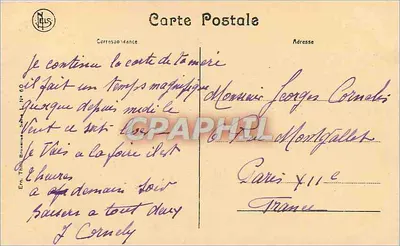 Carte Postale
Correspondance
Adresse
Je continue la carte de ta mère
il fait un temps magnifique
quoique depuis midi le
vent ce soit
Je vais a la foire il est
2 heures
a demain soir
Baisers a tout deux
J Cornely
Monsieur Georges Cornelis
6 Rue Montgallet
Paris XIIe
France
CPAPHIL
NELS